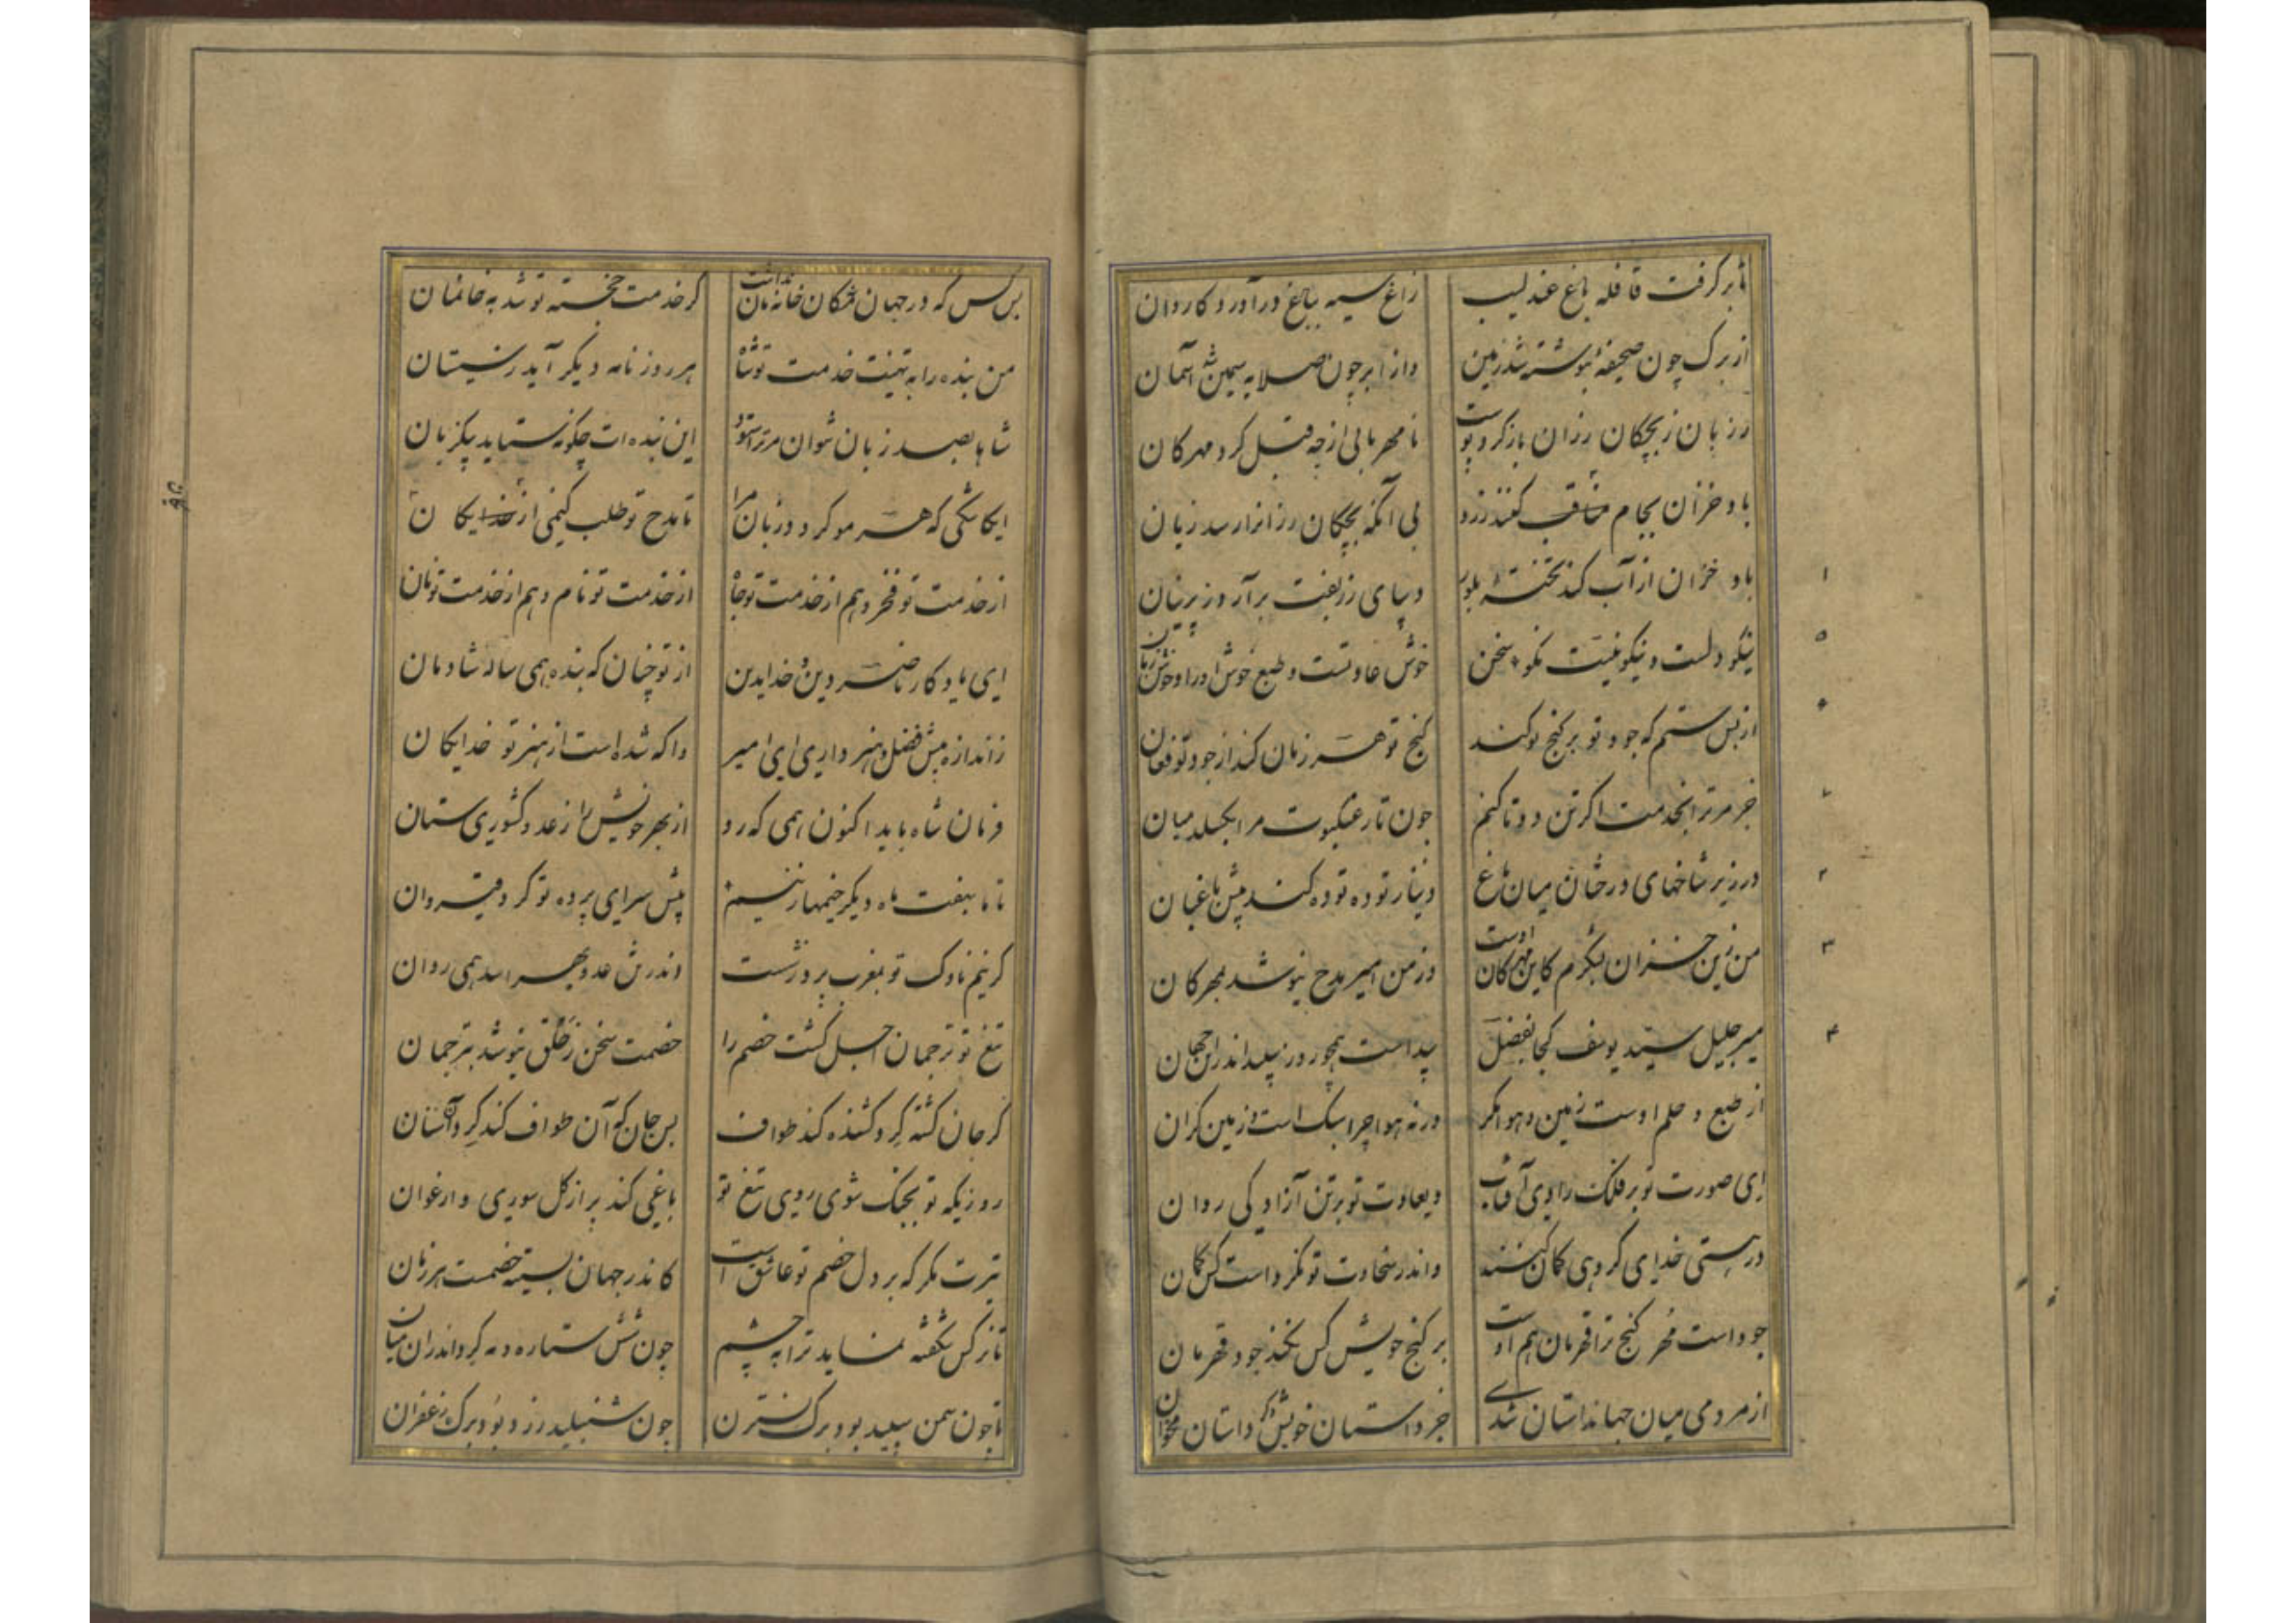 تا بر گرفت قافله باغ عندلیب
زاغ سیه بباغ درآورد کاروان
از برگ چون صحیفهٔ بنوشته شد زمین
وز ابر چون صلایه سیمین شد آسمان
رزبان ز بچگان رزان باز کرد پوست
نامهربانی از چه قبل کرد مهرکان
باد خزان بجام کنند زرد
بی آنکه بچکان رزانرا رسد زیان
باد خزان از آب کند تختهٔ بلور
دیبای زربفت برآرد ز پرنیان
نیکو دلست و نیکو نیت نکو سخن
خوش عادتست و طبع خوش او را و خوش زبان
از بس ستم که جود تو بر کنج تو کند
کنج تو هر زمان کند از جود تو فغان
جز مر ترا بخدمت اگر تن دو تا کنم
چون تار عنکبوت مرا بکسلد میان
در زیر شاخهای درختان میان باغ
دینار توده توده کند پیش باغبان
من زین خزان بشکرم کاین مهرکان اوست
وز من امیر مدح نیوشد بمهرکان
میر جلیل سید یوسف کجا بفضل
پیداست همچو روز سپید اندر این جهان
از طبع و حلم اوست زمین و هوا مکر
ورنه هوا چرا سبک است و زمین کران
ای صورت تو بر فلک رادی آفتاب
ویعادت تو بر تن آزادکی روان
در هستی خدای کروهی کمان کنند
واندر سخاوت تو نکرد است کس کمان
جود است قهر کنج ترا قهرمان هم اوست
بر کنج خویش کس نکند جود قهرمان
از مردمی میان جهان داستان شدی
جز داستان خویش دکر داستان مخوان
بس کس که در جهان خانمان نداشت
کز خدمت خجسته تو شد بخانمان
من بنده را به تهنیت خدمت تو شاه
هر روز نامه دیکر آید ز سیستان
شاها بصد زبان نتوان مر ترا ستود
این بنده ات چکونه ستاید بیکزبان
ایکاشکی که هر سر مو کردد زبان مرا
تا مدح تو طلب کنمی از خدایکان
از خدمت تو فخر و هم از خدمت تو جاه
از خدمت تو نام و هم از خدمت تو نان
ای یادکار ناصر دین خدا بدین
از تو چنان که بنده همی ساله شادمان
ز اندازه بیش فضل و هنر داری ای امیر
واکه شده است از هنر تو خدایکان
فرمان شاه باید اکنون همی که رو
از بهر خویش را ز عدو کشوری ستان
تا ما بهفت ماه دیکر خیمها زنیم
پیش سرای پرده تو کرد قیروان
کز نیم ناوک تو بمغرب برد
وندر تن عدو بهراسد همی روان
تیغ تو ترجمان اجل کشت خصم را
خصمت سخن ز خلق نیوشد بترجمان
کر جان کشته کرد کشنده کند طواف
بس جان که آن طواف کند کرد آنسنان
روزیکه تو بجنک شوی روی تیغ تو
باغی کند پر از کل سوری و ارغوان
تیرت مکر که بر دل خصم تو عاشق است
کاندر جهان بسینه خصمت هر زمان
تا نرکس شکفته نماید ترا به چشم
چون شش ستاره و مه کرد اندران میان
تا چون سمن سپید بود برک نسترن
چون شنبلید زرد بود برک زعفران